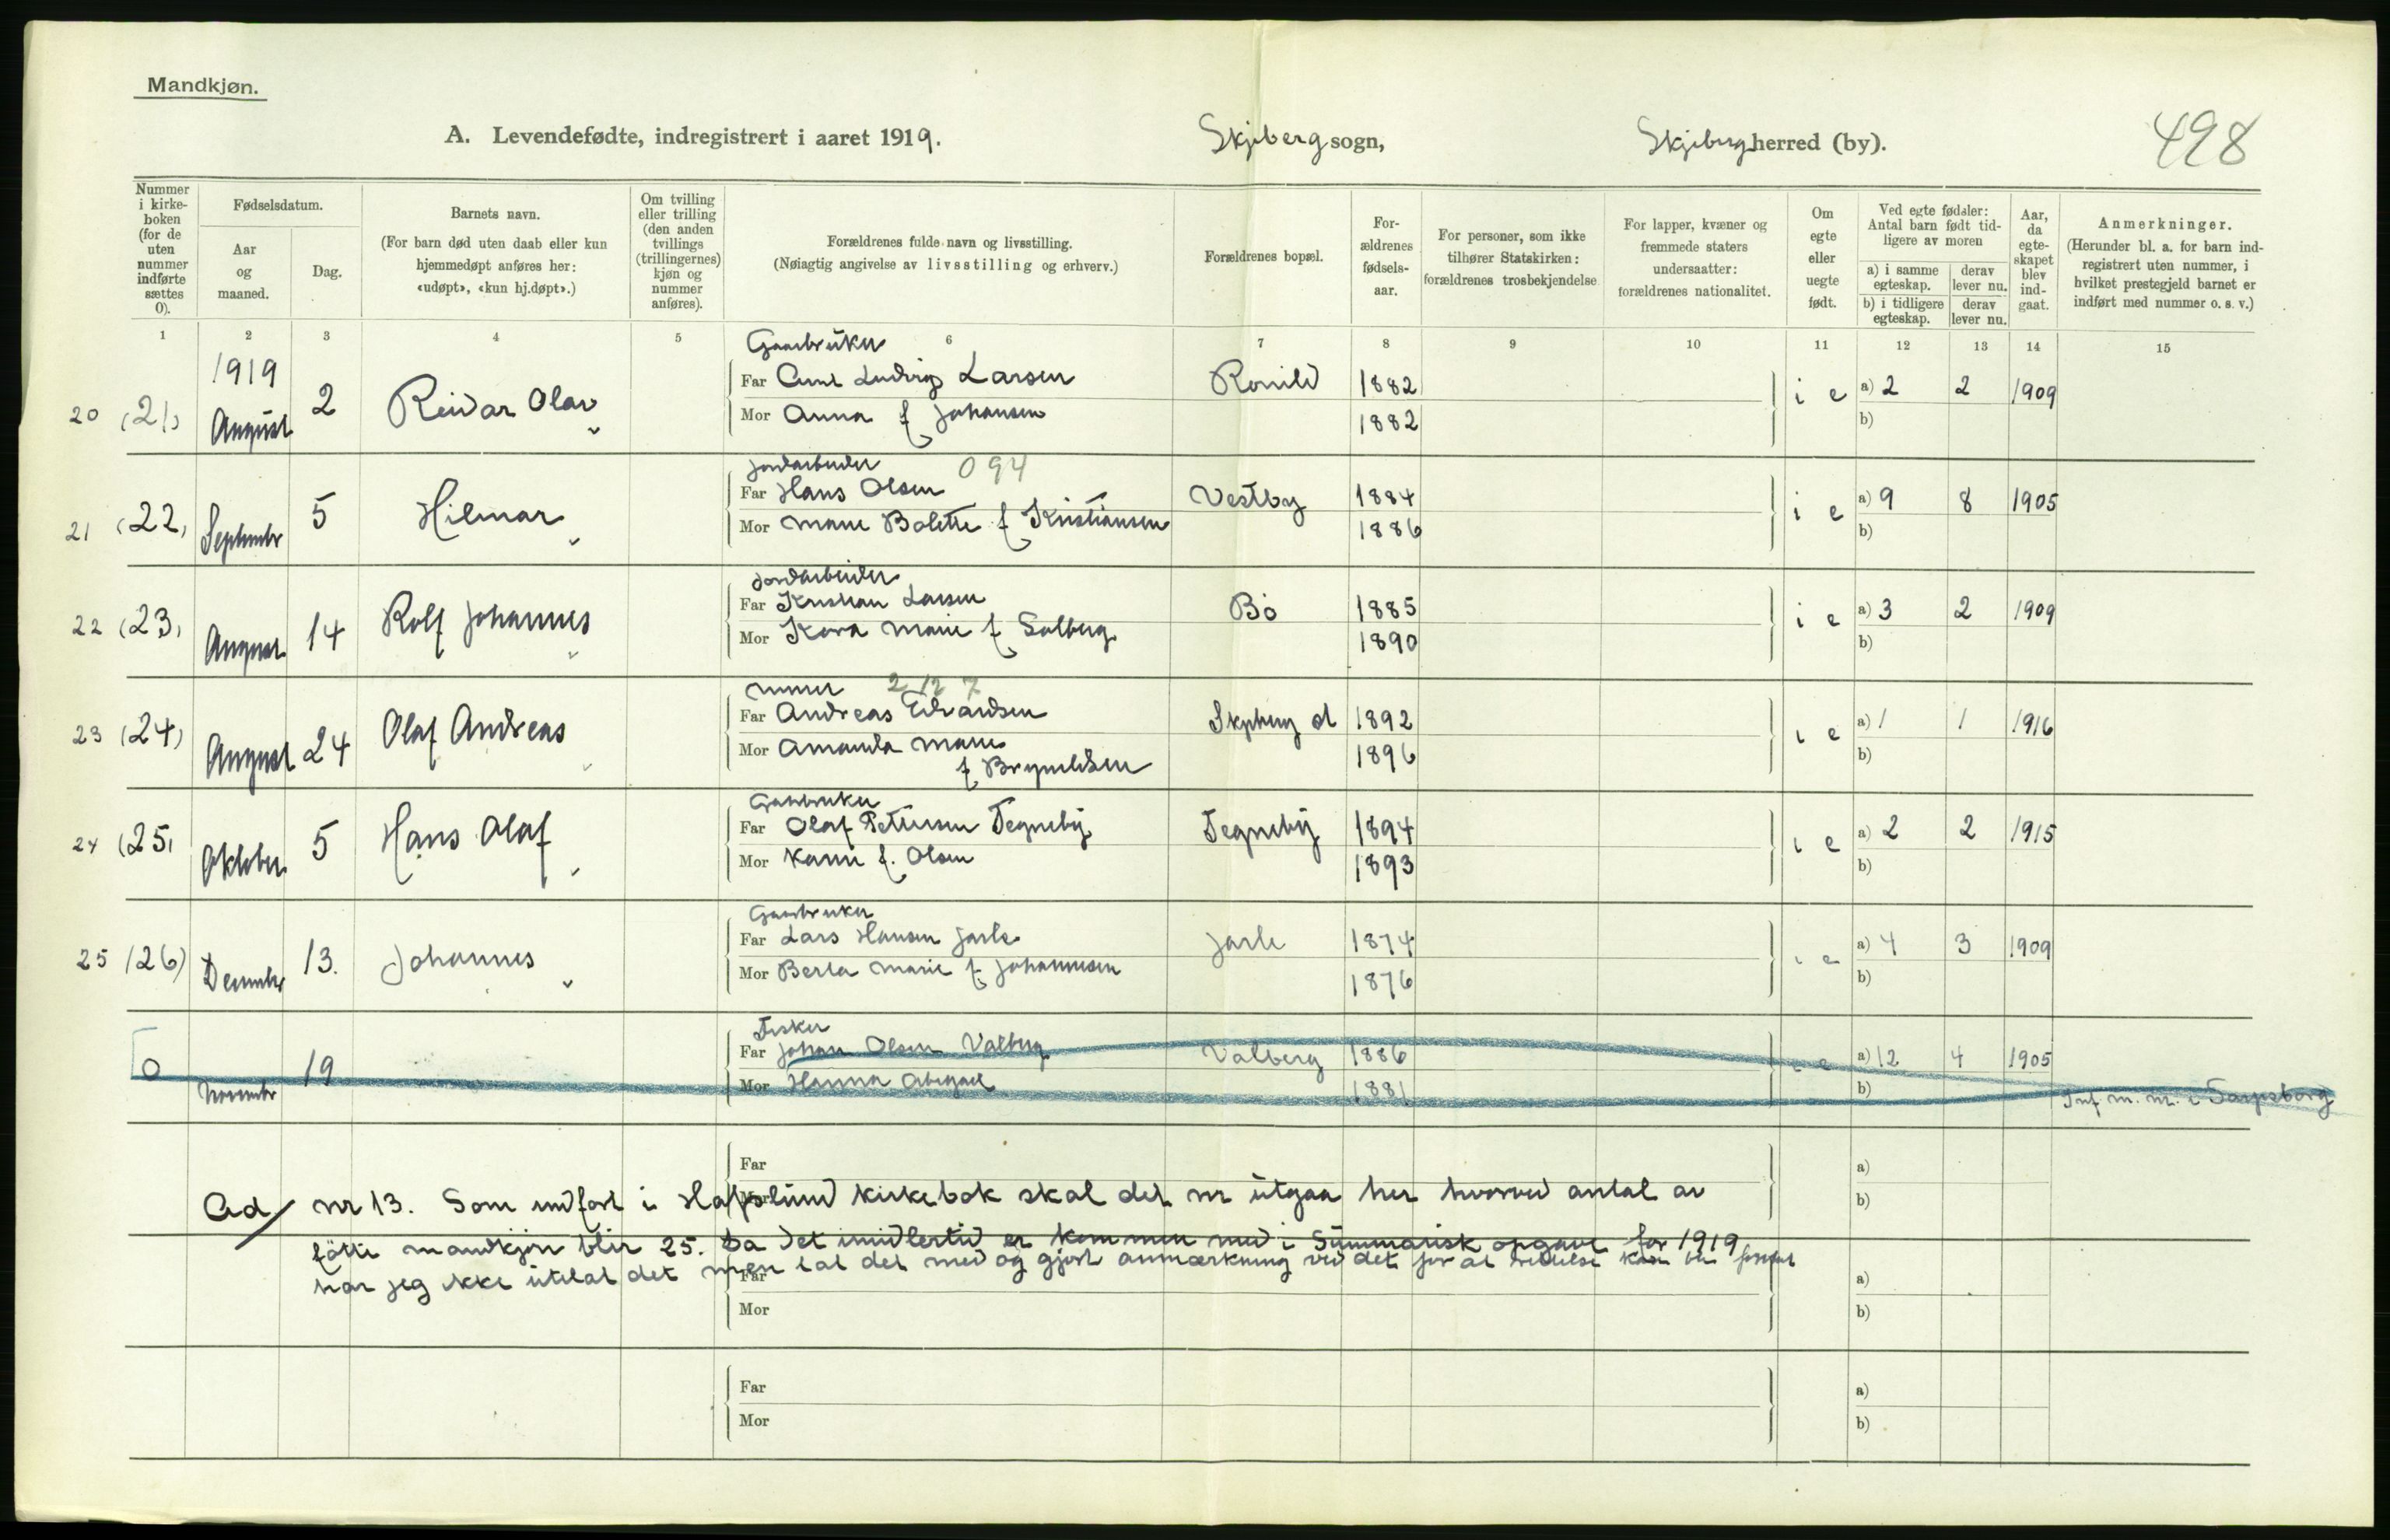 Mandkjøn.
A. Levendefødte, indregistrert i aaret 1919.
Skjeberg sogn,
Skjeberg herred (by).
498
Nummer i kirke-boken (for de uten nummer indførte sættes 0).
Fødselsdatum.
Aar og maaned.
Dag.
Barnets navn.
(For barn død uten daab eller kun hjemmedøpt anføres her: «udøpt», «kun hj.døpt».)
Om tvilling eller trilling (den anden tvillings (trillingernes) kjøn og nummer anføres).
Forældrenes fulde navn og livsstilling.
(Nøiagtig angivelse av livsstilling og erhverv.)
Forældrenes bopæl.
For-ældrenes fødsels-aar.
For personer, som ikke tilhører Statskirken: forældrenes trosbekjendelse
For lapper, kvæner og fremmede staters undersaatter: forældrenes nationalitet.
Om egte eller uegte født.
Ved egte fødsler: Antal barn født tid-ligere av moren
a) i samme egteskap.
derav lever nu.
b) i tidligere egteskap.
derav lever nu.
Aar, da egte-skapet blev ind-gaat.
Anmerkninger.
(Herunder bl. a. for barn ind-registrert uten nummer, i hvilket prestegjeld barnet er indført med nummer o. s. v.)
1 2 3 4 5 6 7 8 9 10 11 12 13 14 15
Gaardbruker
20 (21) 1919 August 2 Reidar Olav Far Ludvig Larsen 1882 i e a) 2 2 1909
Mor Anna f Johansen 1882 b)
Jordarbeider 094
21 (22) September 5 Hilmar Far Hans Olsen Vestby 1884 i e a) 9 8 1905
Mor Marie Bolette f Kristiansen 1886 b)
Jordarbeider
22 (23) August 14 Rolf Johannes Far Kristian Larsen Bö 1885 i e a) 3 2 1909
Mor Kora Marie f Solberg 1890 b)
Murer 2 12 7
23 (24) August 24 Olaf Andreas Far Andreas Edvardsen Skjeberg st 1892 i e a) 1 1 1916
Mor Amanda Marie 1896 b)
f Brynildsen
Gaardbruker
24 (25) Oktober 5 Hans Olaf Far Olaf Pettersen Tegneby Tegneby 1894 i e a) 2 2 1915
Mor Karin f. Olsen 1893 b)
Gaardbruker
25 (26) December 13. Johannes Far Lars Hansen Jarle Jarle 1874 i e a) 4 3 1909
Mor Berta Marie f Johannesen 1876 b)
Fisker
0 November 19 Far Johan Olsen Valberg Valberg 1886 i e a) 12 4 1905
Mor Hanna Abigael 1881 b) Inf m. nr. i Sarpsborg
Far a)
Ad/ nr 13. Som indfört i Hafslund kirkebok skal det nr utgaa her hvorved antal av
Mor b)
födte mandkjön blir 25. Da det imidlertid er kommen med i Summarisk opgave for 1919
har jeg ikke utelat det men tat det med og gjort anmærkning ved det for at rettelse kan bli
Far a)
Mor b)
Far a)
Mor b)